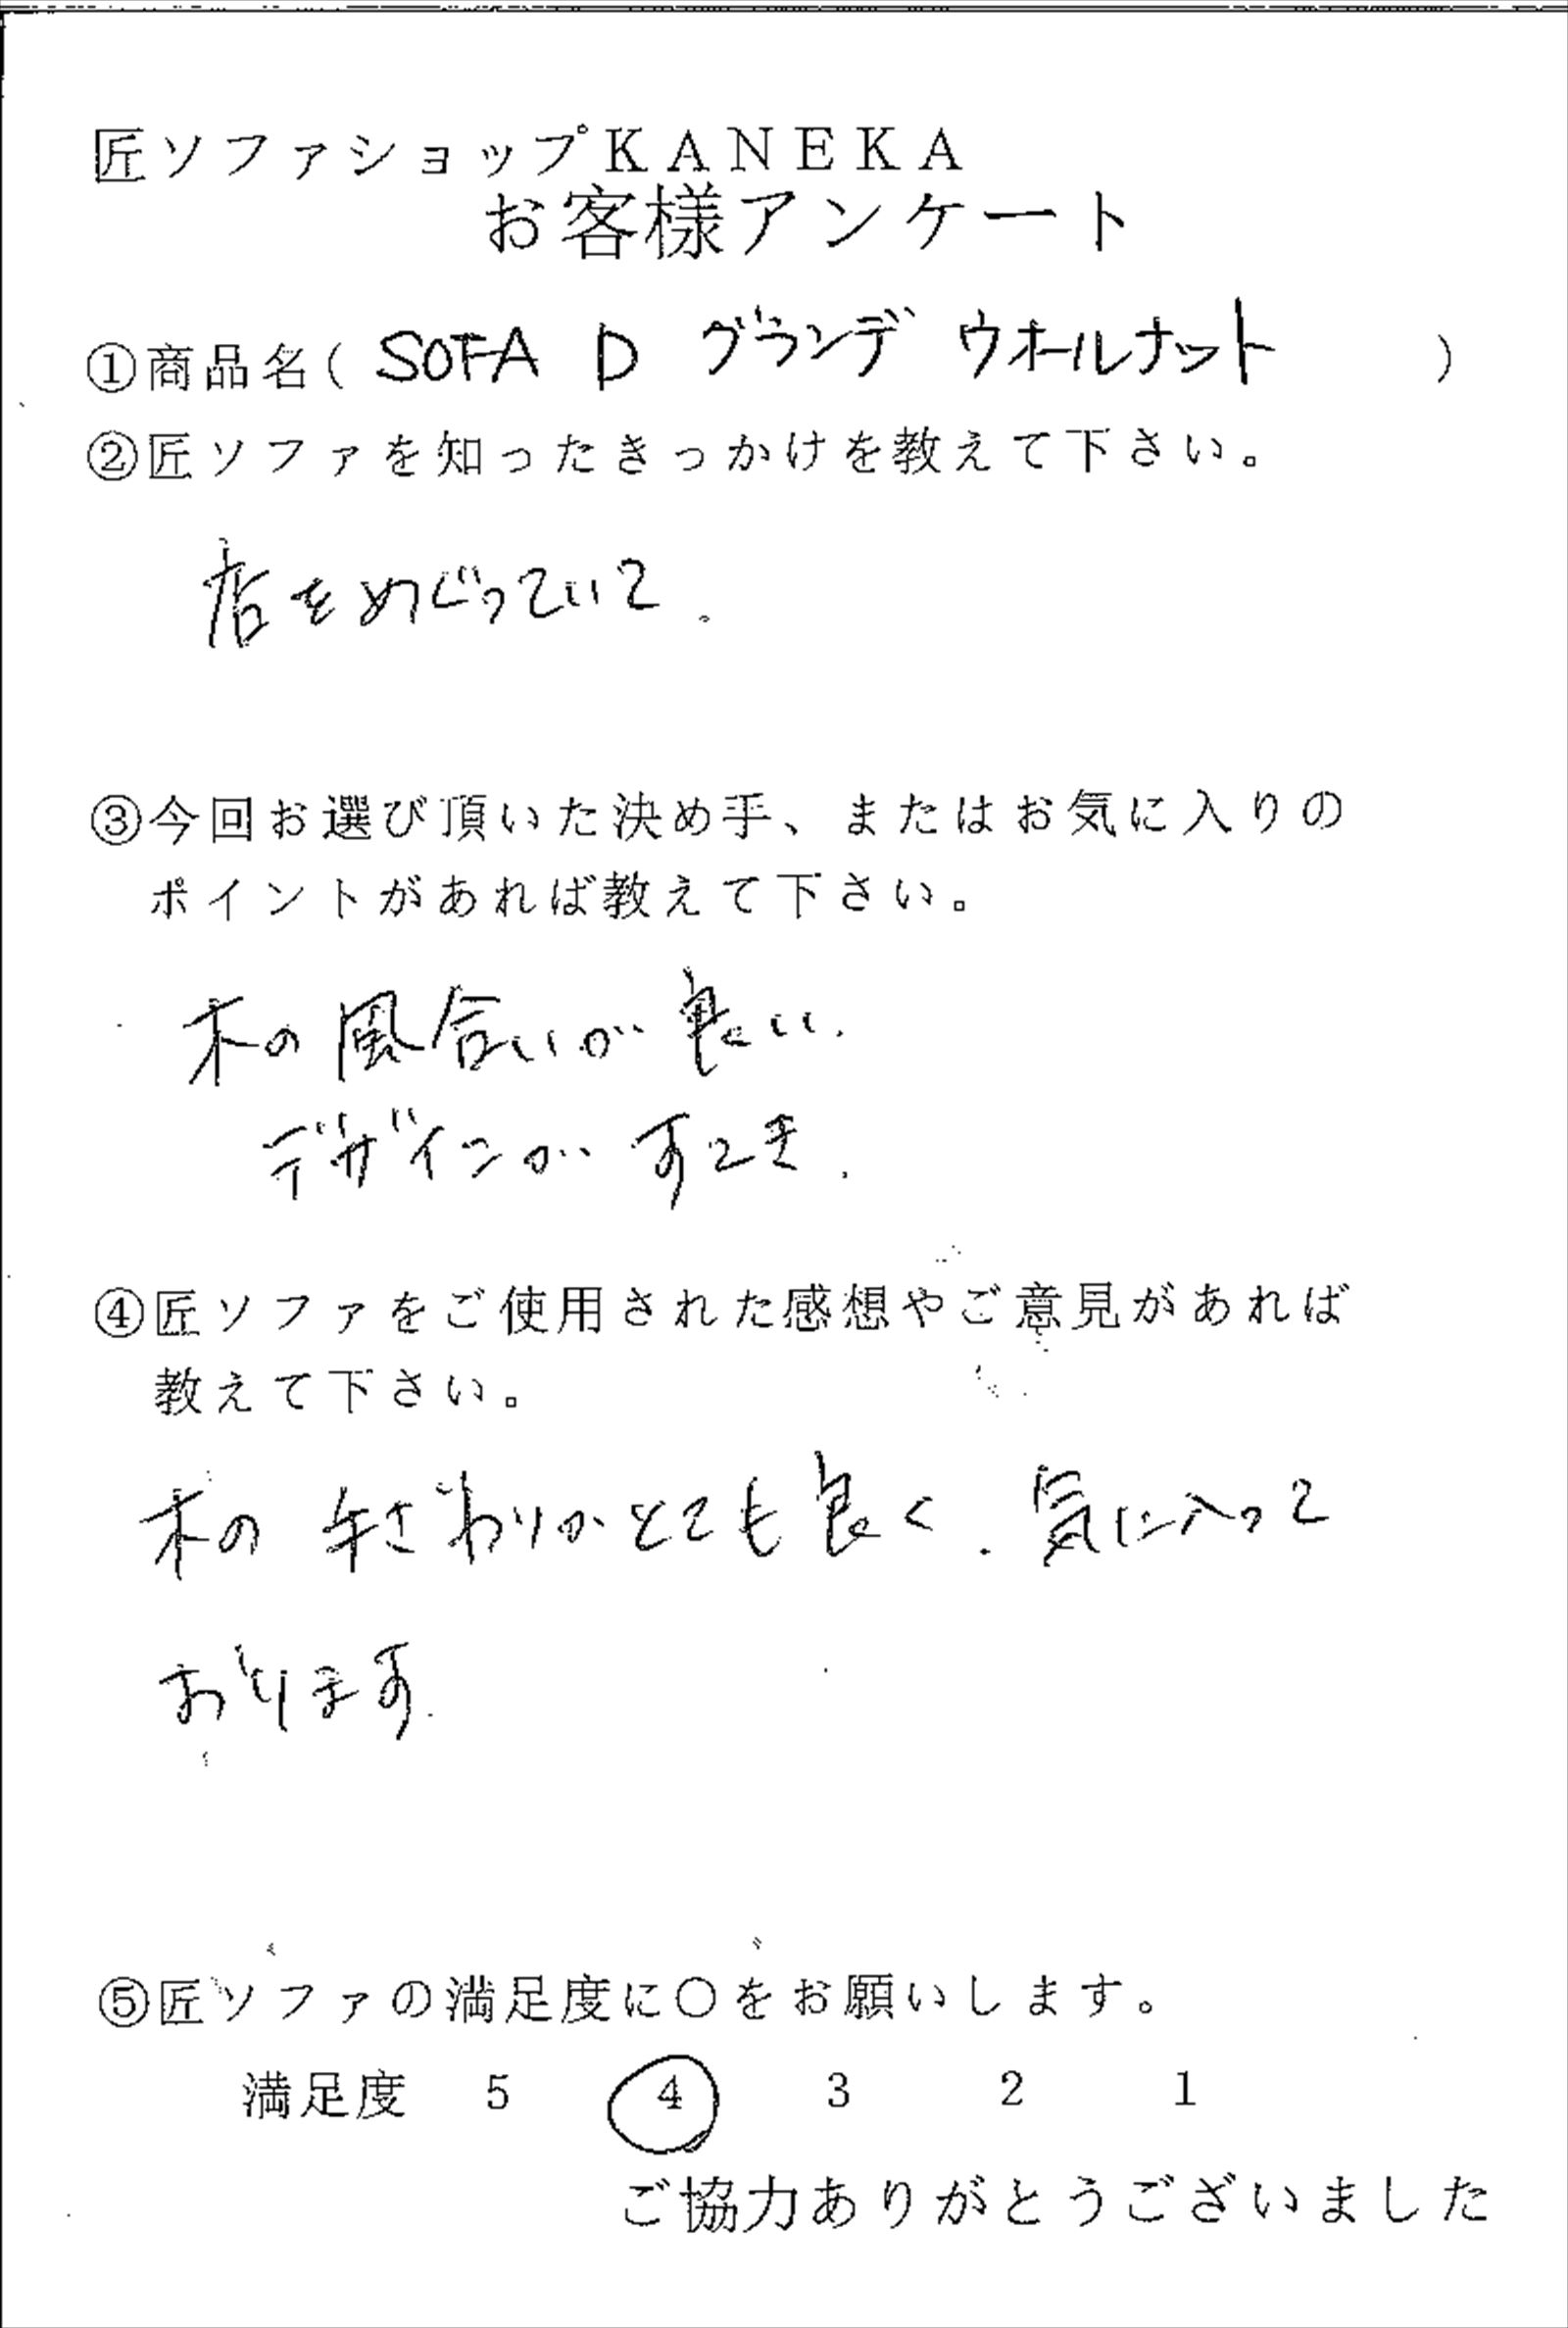 匠ソファショップKANEKA
お客様アンケート
①商品名( SOFA D グランデ ウオールナット )
②匠ソファを知ったきっかけを教えて下さい。
店をめぐっていて。
③今回お選び頂いた決め手、またはお気に入りの
ポイントがあれば教えて下さい。
木の風合いが良い.
デザインがすてき.
④匠ソファをご使用された感想やご意見があれば
教えて下さい。
木の手ざわりがとても良く.気に入って
おります.
⑤匠ソファの満足度に〇をお願いします。
満足度 5 4 3 2 1
ご協力ありがとうございました